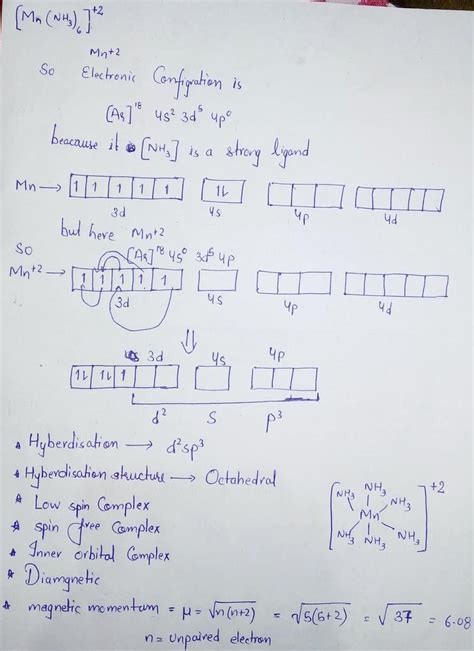 [Mn(NH₃)₆]⁺²
Mn+2
So Electronic Configration is
[Ar]¹⁸ 4s² 3d⁵ 4p⁰
beacause it [NH₃] is a strong ligand
Mn → 1 1 1 1 1 1↓
3d 4s 4p 4d
but here Mn⁺²
So [Ar]¹⁸ 4s⁰ 3d⁵ 4p
Mn⁺² → 1 1 1 1 1
3d 4s 4p 4d
⇓
3d 4s 4p
1↓ 1↓ 1
d² S p³
Hyberdisation → d²sp³
Hyberdisation structure → Octahedral
Low spin Complex
spin free Complex
Inner orbital Complex
Diamgnetic
magnetic momentum = μ = √n(n+2) = √5(5+2) = √37 = 6.08
n = unpaired electron
[Mn NH₃ NH₃ NH₃ NH₃ NH₃ NH₃]⁺²